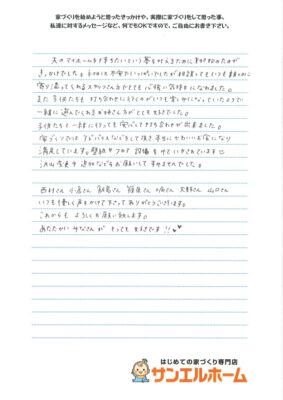 家づくりを始めようと思ったきっかけや、実際に家づくりをして思った事、
私達に対するメッセージなど、何でもOKですので、ご自由にお書き下さい。
夫のマイホームを持ちたいという夢を叶えるために動き始めたのが
きっかけでした。不安でいっぱいでしたが相談してもいつも親身に
寄り添ってくれるスタッフさん方でとても心強い気持ちになれました。
また子供たちも打ち合わせに行くのがいつも楽しみになっていたようで
一緒に遊んでくれるお姉さん方がとても大好きでした。
子供たちと一緒に行っても安心して打ち合わせが出来ました。
家づくりではアドバイスなどをして頂き本当にかわいいお家になり
満足しています。壁紙やフロア設備も
沢山変更や追加などもお願いしてすみませんでした。
西村さん 小澤さん 飯島さん 篠原さん 大野さん 山口さん
いつも優しく声をかけて下さってありがとうございます。
これからもよろしくお願い致します。
あたたかいみなさんがとっても大好きです!!
はじめての家づくり専門店
サンエルホーム